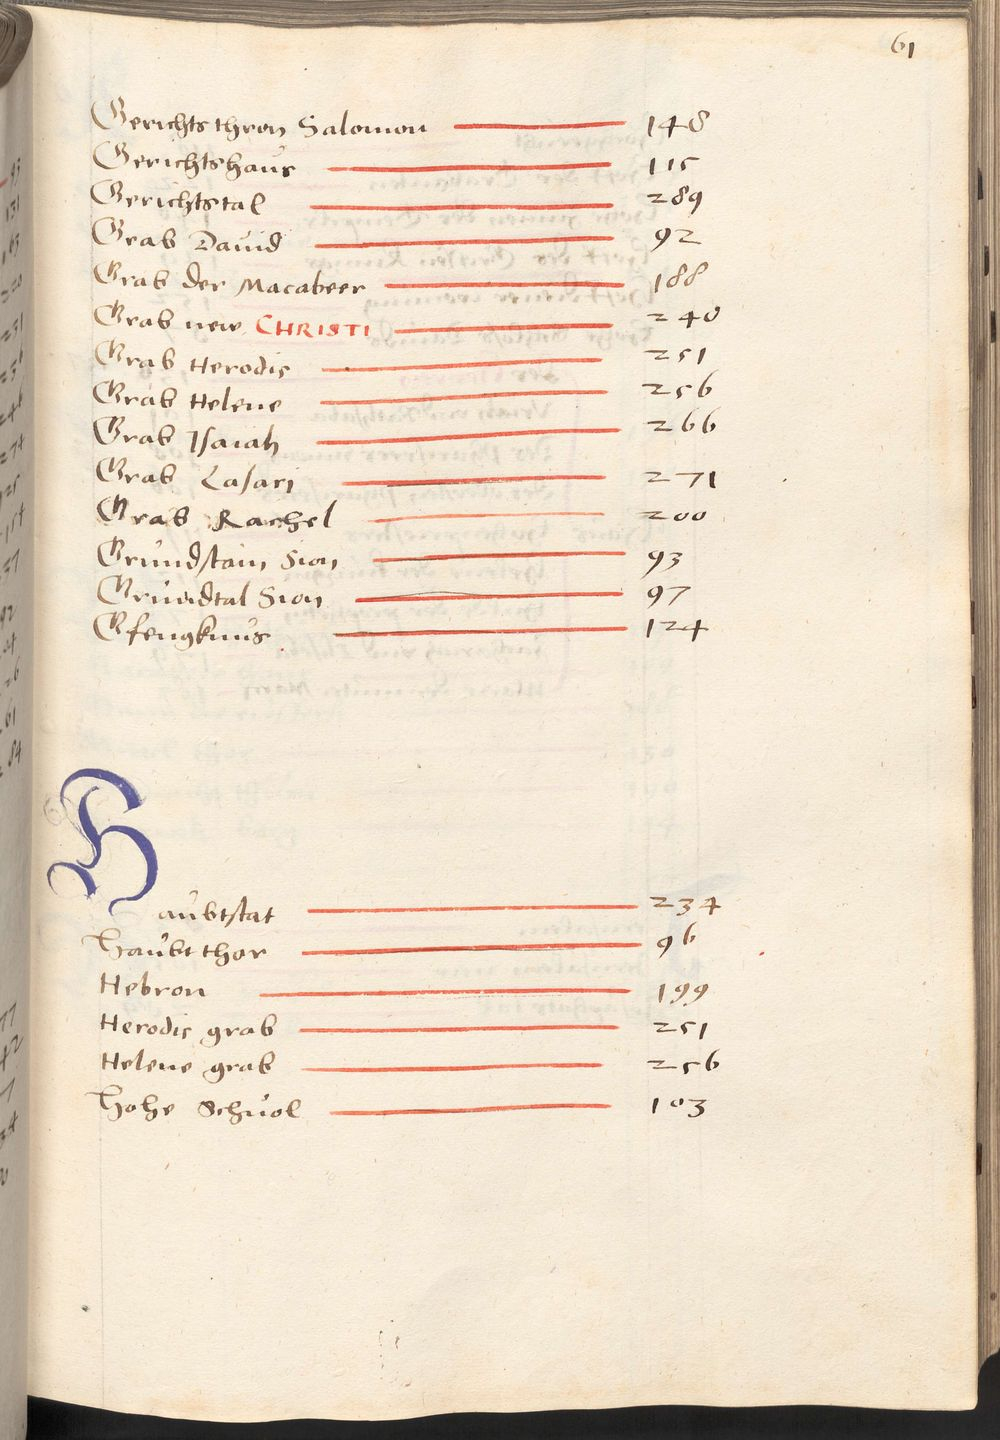 61
Gerichtsthron Salomon 148
Gerichtshaus 115
Gerichtstal 289
Grab Dauid 92
Grab der Macabeer 188
Grab new CHRISTI 240
Grab Herodis 251
Grab Helene 256
Grab Isaiah 266
Grab Lasari 271
Grab Rachel 200
Grundstain Sion 93
Grundtal Sion 97
Gfengknus 124
Haubtstat 234
Haubt thor 96
Hebron 199
Herodis grab 251
Helene grab 256
Hohe Schuol 103